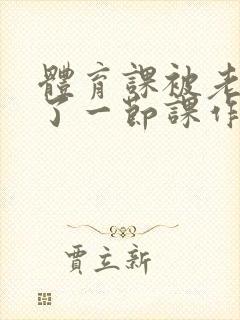 體育課被老
了一節課作
賈立新